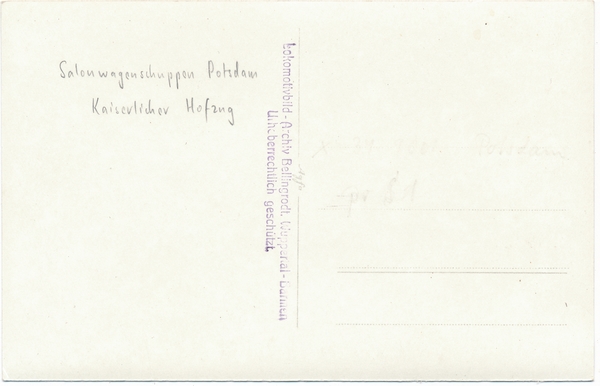 Salonwagenschuppen Potsdam
Kaiserlicher Hofzug
Lokomotivbild-Archiv Bellingrodt, Wuppertal-Barmen
Urheberrechtlich geschützt
Potsdam